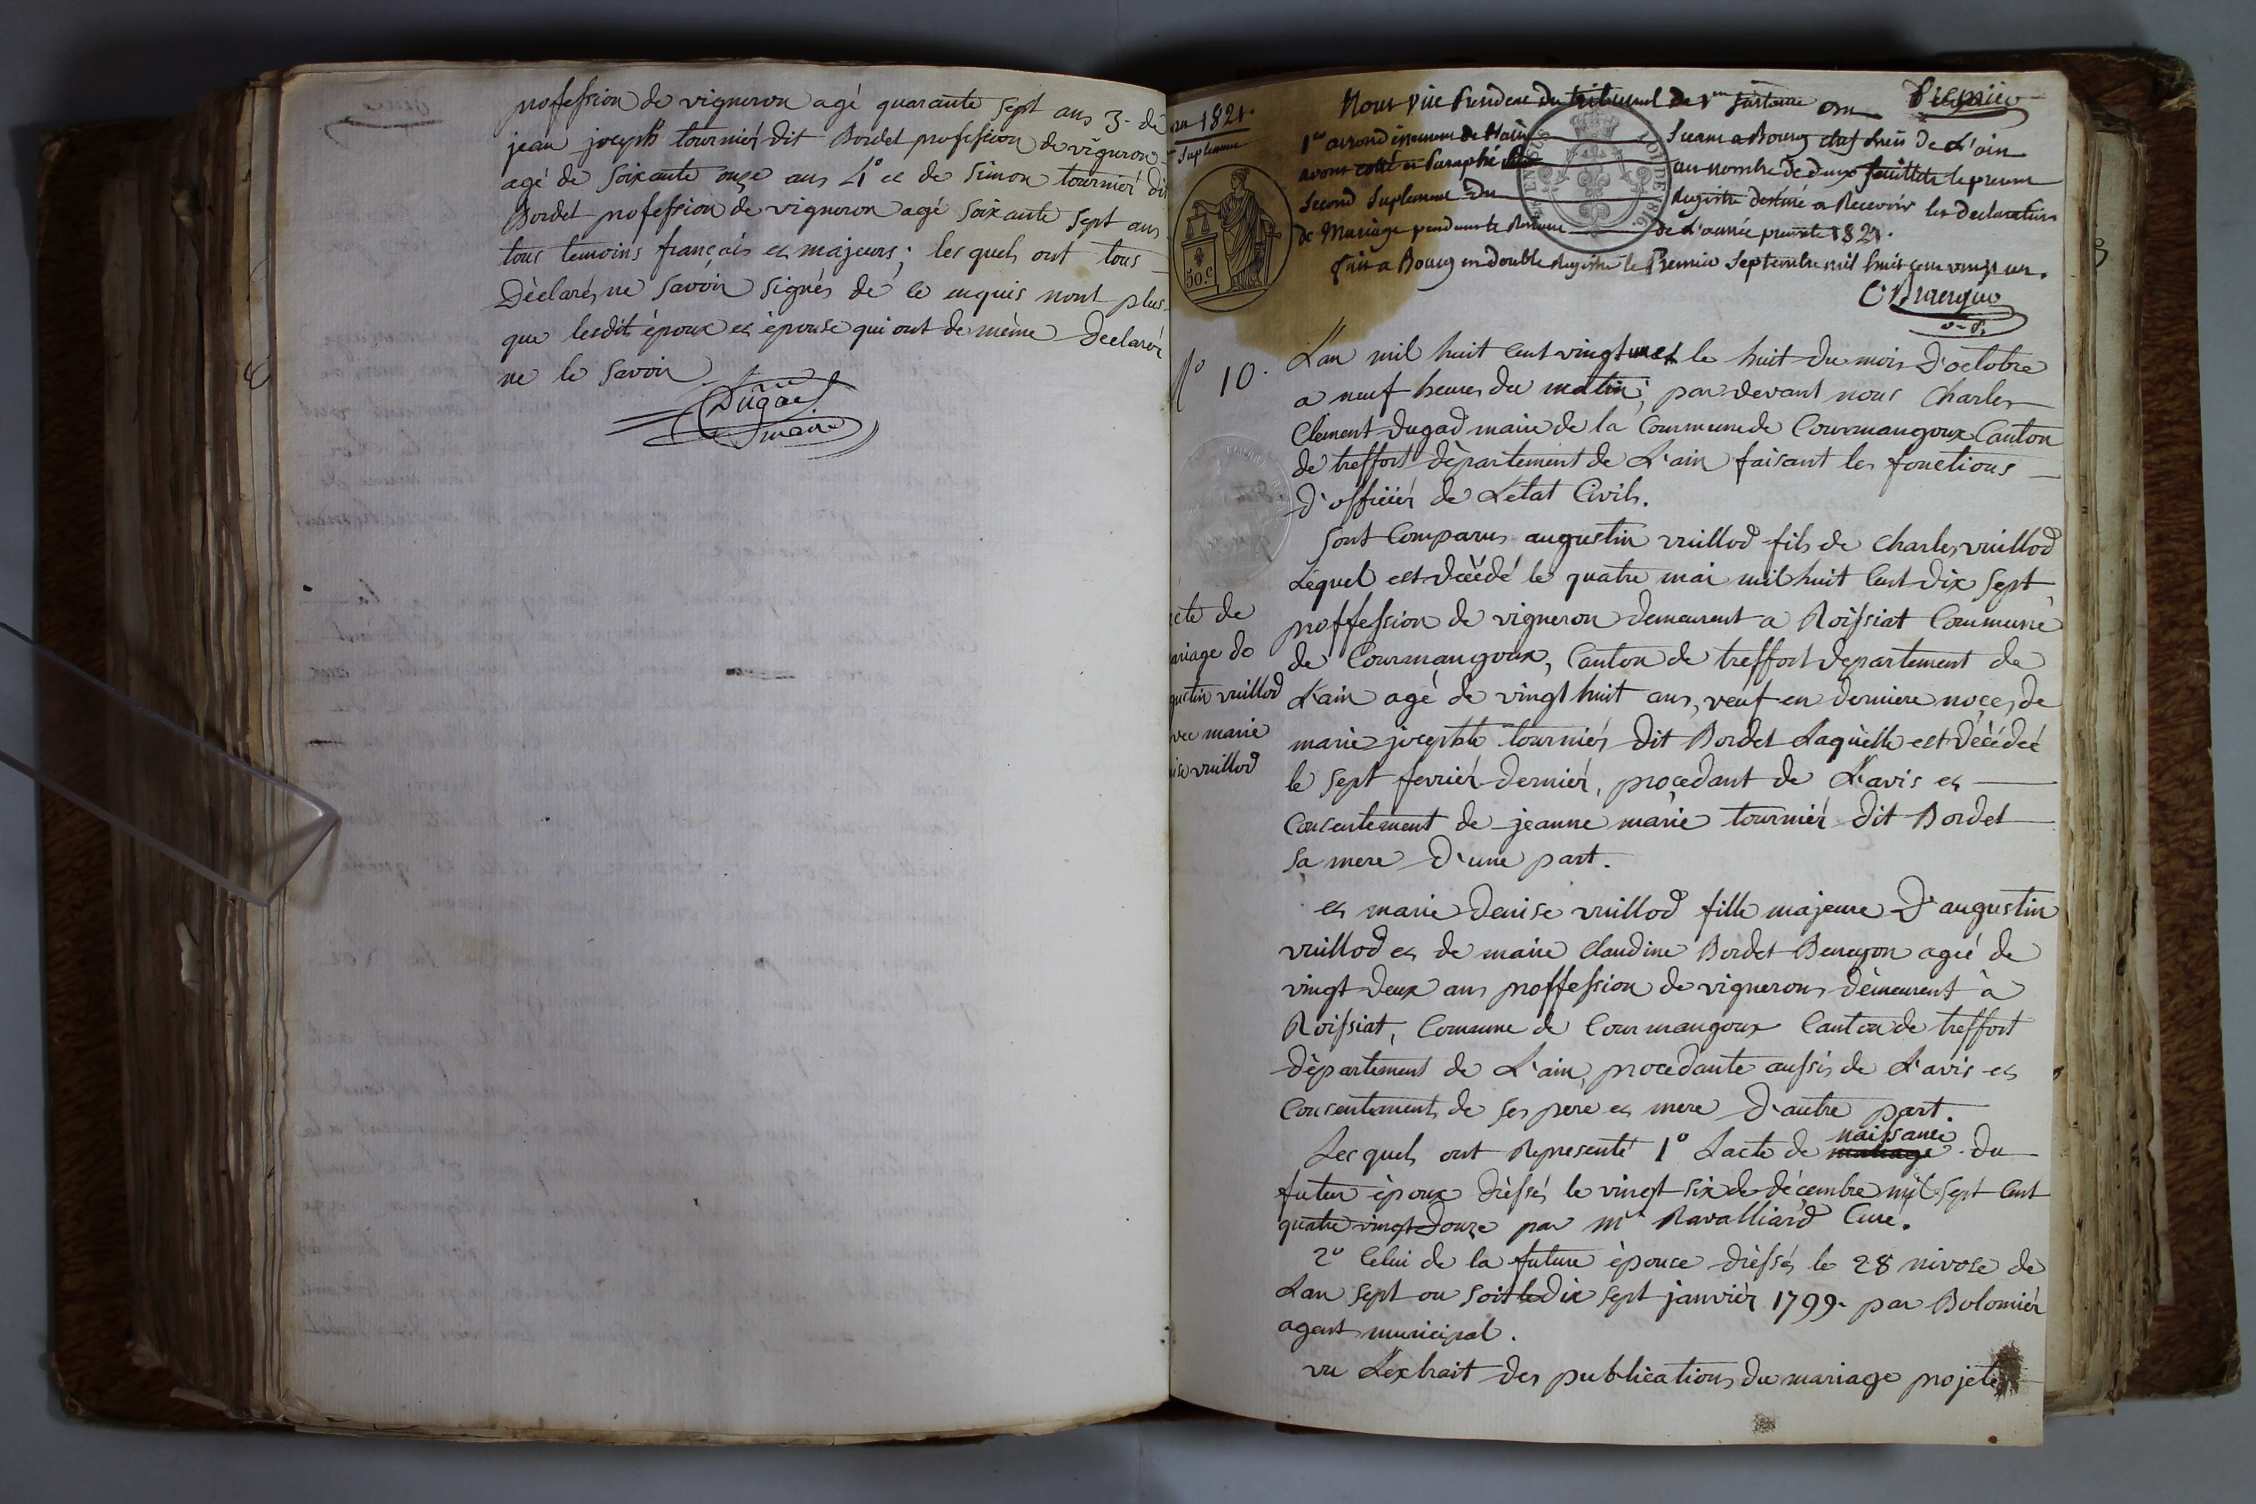 profession de vigneron agé quarante sept ans 3.° de
jean joseph tourniér dit Bordet profession de vigneron
agé de soixante onze ans 4° et de Simon tourniér dit
Bordet profession de vigneron agé soixante sept ans
tous temoins français et majeurs; lesquels ont tous
Déclarés ne savoir signés de ce enquis nont plus
que lesdit époux et épouse qui ont de même declarér
ne le savoir
Dugad
maire
1821.
Suplement
50.c
Nous vice President du tribunal de 1ere instance
Premier
1er arrondissement de
avons cotté et Paraphé
Second Suplement du
de Mariage pendant le
Seant a Bourg chef lieu de L'ain
au nombre de deux feuillets le premier
Registre destiné a Recevoir les declarations
de L'année presente 1821.
fait a Bourg en double Registre le Premier Septembre mil huit cent vingt un.
N° 10.
L'an mil huit cent vingt un et le huit du mois D'octobre
a neuf heures du matin; par devant nous Charles
Clement Dugad maire de la Commune de Courmangoux Canton
de treffort département de L'ain faisant les fonctions
D'officiér de Letat Civils.
Sont Comparus augustin vuillod fils de Charles vuillod
Léquel est décédé le quatre mai mil huit Cent Dix Sept
proffession de vigneron demeurent a Roissiat Commune
de Courmangoux, Canton de treffort departement de
L'ain agé de vingt huit ans, veuf en derniere noces, de
marie josephte tourniér dit Bordet Laquelle est décédée
le sept fevriér derniér, procedant de L'avis et
Consentement de jeanne marie tourniér dit Bordet
sa mere d'une part.
et marie denise vuillod fille majeure D'augustin
vuillod et de marie Claudine Bordet Benezon agée de
vingt deux ans proffession de vignerons démeurent à
Roissiat, Commune de Courmangoux Canton de treffort
département de L'ain, procedante aussis de L'avis et
Consentements de ses pere et mere d'autre part.
Lesquels ont Representé 1° Lacte de mariage naissance du
futur époux dréssés le vingt six de décembre mil sept Cent
quatre vingt douze par mr Ravalliard Curé.
2° Celui de la future épouce dréssés le 28 nivose de
Lan sept ou soit le dix sept janviér 1799. par Bolomiér
agent municipal.
vu L'extrait des publications du mariage projeté
acte de
mariage de
gustin vuillod
vec marie
ise vuillod